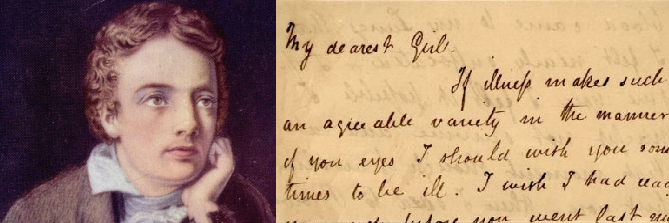 My dearest Girl
If illness makes such
an agreeable variety in the manner
of you eyes I should wish you some
times to be ill. I wish I had read
before you went last